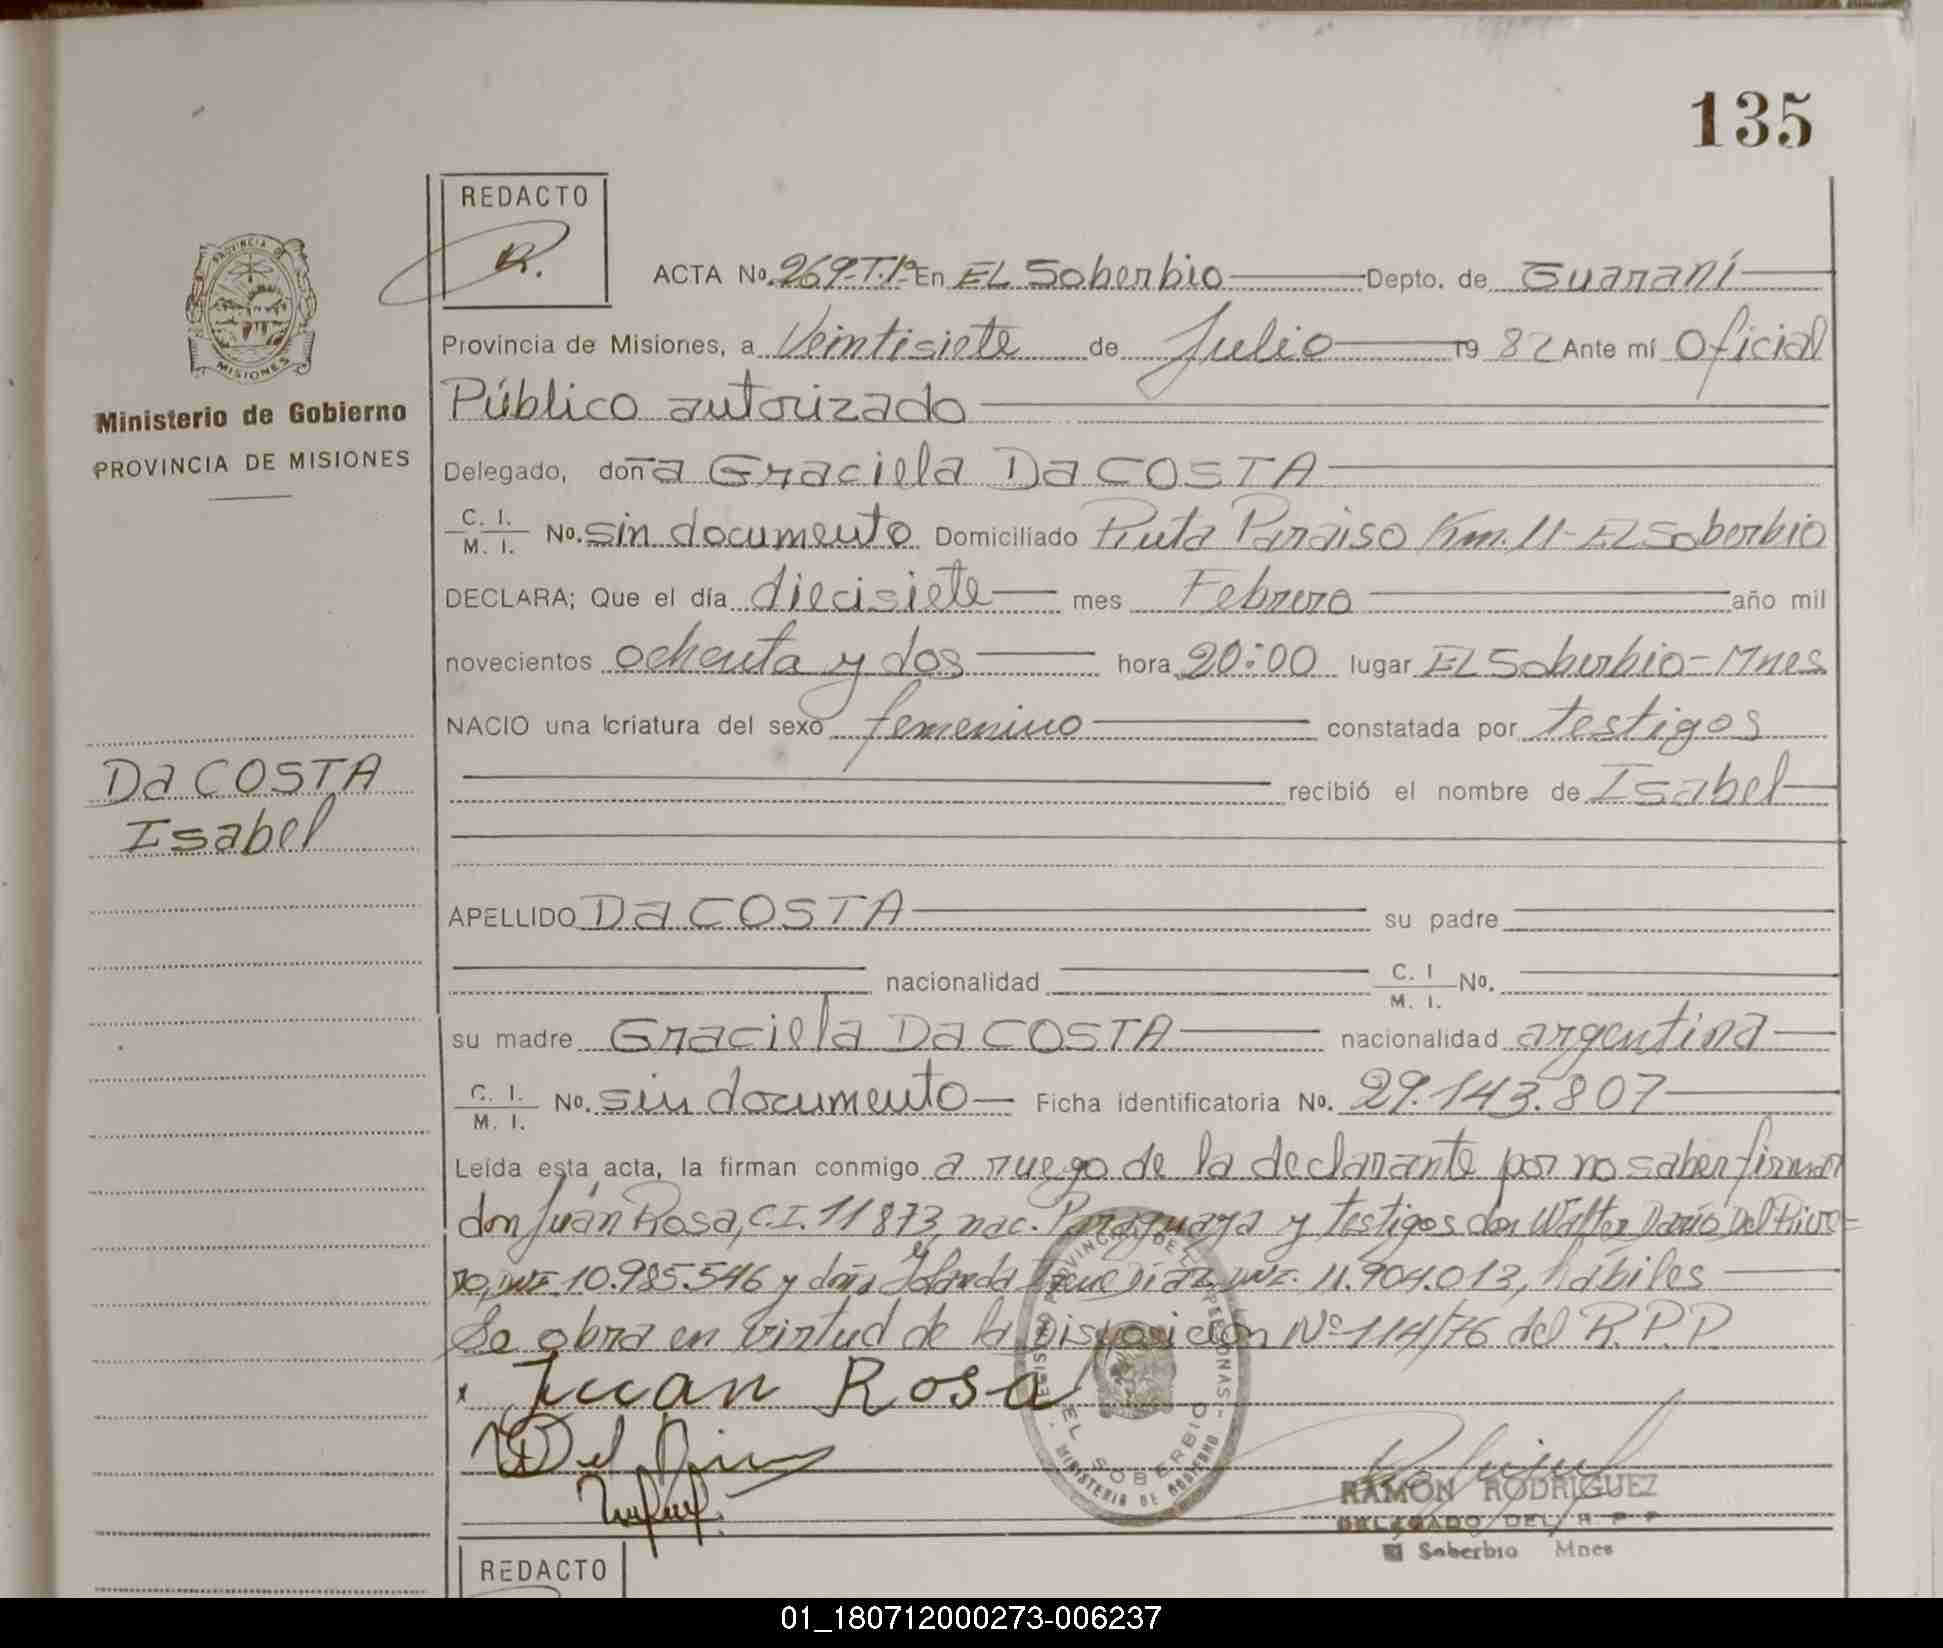 135
REDACTO
R.
PROVINCIA DE
MISIONES
Ministerio de Gobierno
PROVINCIA DE MISIONES
ACTA No. 269-T.1º En EL Soberbio Depto. de Guaraní
Provincia de Misiones, a Veintisiete de Julio 19 82 Ante mí Oficial
Público autorizado
Delegado, doña Graciela Da COSTA
C. I. / M. I. No. sin documento Domiciliado Ruta Paraiso Km. 11 - EL Soberbio
DECLARA; Que el día diecisiete mes Febrero año mil
novecientos ochenta y dos hora 20:00 lugar EL Soberbio - Mnes
NACIO una criatura del sexo femenino constatada por testigos
recibió el nombre de Isabel
Da COSTA
Isabel
APELLIDO Da COSTA su padre
nacionalidad C. I / M. I. No.
su madre Graciela Da COSTA nacionalidad argentina
C. I. / M. I. No. sin documento Ficha identificatoria No. 29.143.807
Leída esta acta, la firman conmigo a ruego de la declarante por no saber firmar
don Juan Rosa, C.I. 11873, nac. Paraguaya y testigos don Walter Darío Del Rive-
ro, 10.985.546 y doña Yolanda Irene Díaz, 11.904.013, hábiles
Se obra en virtud de la Disposición Nº 114/76 del R.P.P
x Juan Rosa
Del
REGISTRO PROVINCIAL DE LAS PERSONAS
EL SOBERBIO
MINISTERIO DE GOBIERNO
RAMON RODRIGUEZ
DELEGADO DEL R P P
El Soberbio Mnes
REDACTO
01_180712000273-006237